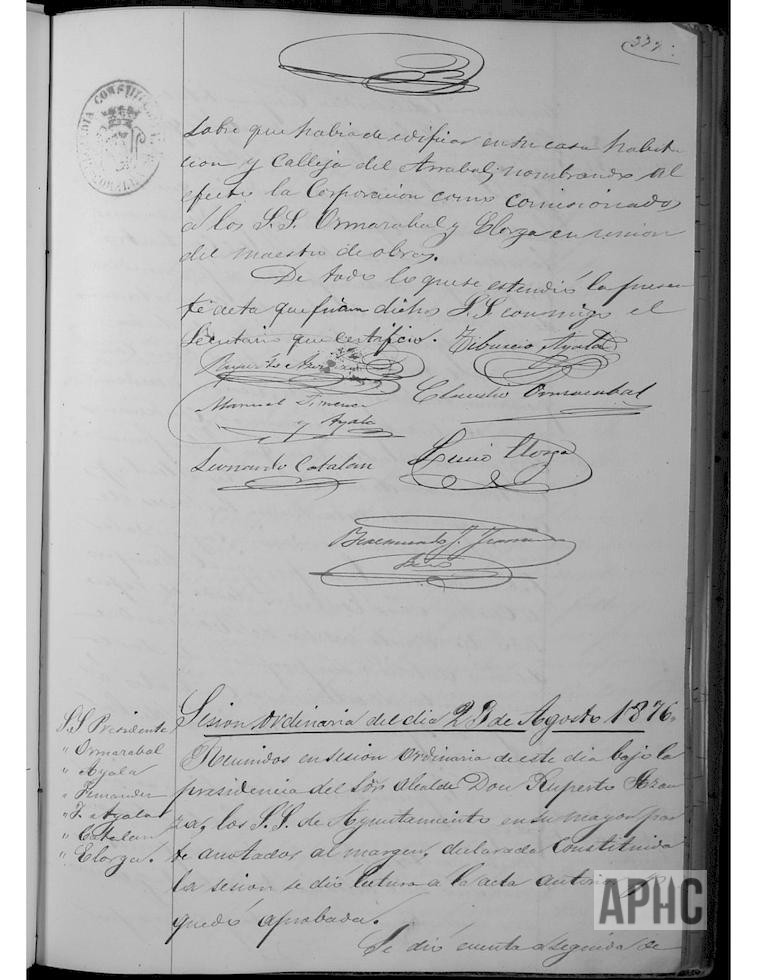 337
solar que habia de edificar en su casa habita
cion y Calleja del Arrabal, nombrando al
efecto la Corporacion como comisionados
á los S.S. Ormazabal y Elorza en union
del maestro de obras.
De todo lo que se estendió la presen
te acta que firman dichos S.S conmigo el
Secretario que certifico. Tiburcio Ayala
Ruperto
Manuel Fimenez
y Ayala
Claudio Ormazabal
Leonardo Catalan
Lucio Elorza
Sesion ordinaria del dia 23 de Agosto 1876.
S.S Presidente
" Ormazabal
" Ayala
" Fernandez
" F. Ayala
" Catalan
" Elorza.
Reunidos en sesion ordinaria de este dia bajo la
presidencia del Sõr Alcalde Don Ruperto Azcau
za, los S.S. de Ayuntamiento en su mayor par
te anotados al margen, declarada Constituida
la sesion se dió lectura a la acta anterior y
quedó aprobada.
Se dió cuenta a seguida de
APHC